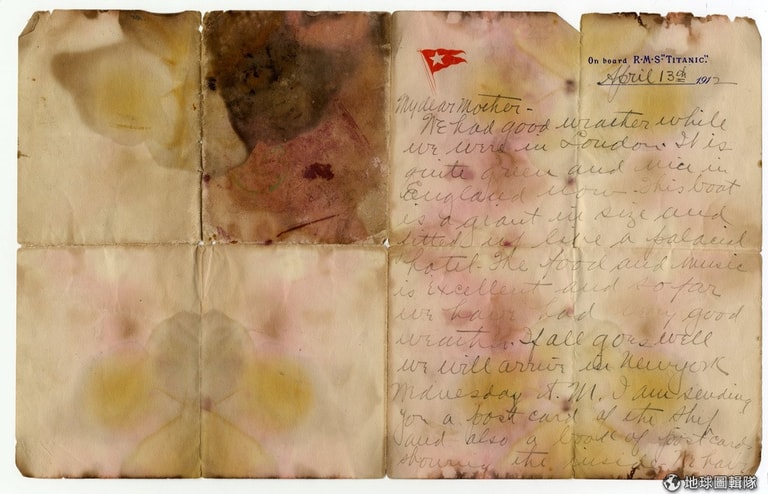 On board R·M·S "TITANIC".
April 13th 1912
My dear Mother -
We had good weather while
we were in London. It is
quite green and nice in
England now. This boat
is a giant in size and
fitted up like a palacial
hotel. The food and music
is excellent and so far
we have had very good
weather. If all goes well
we will arrive in New york
Wednesday A. M. I am sending
you a post card of the ship
and also a book of post cards
showing the inside
地球圖輯隊